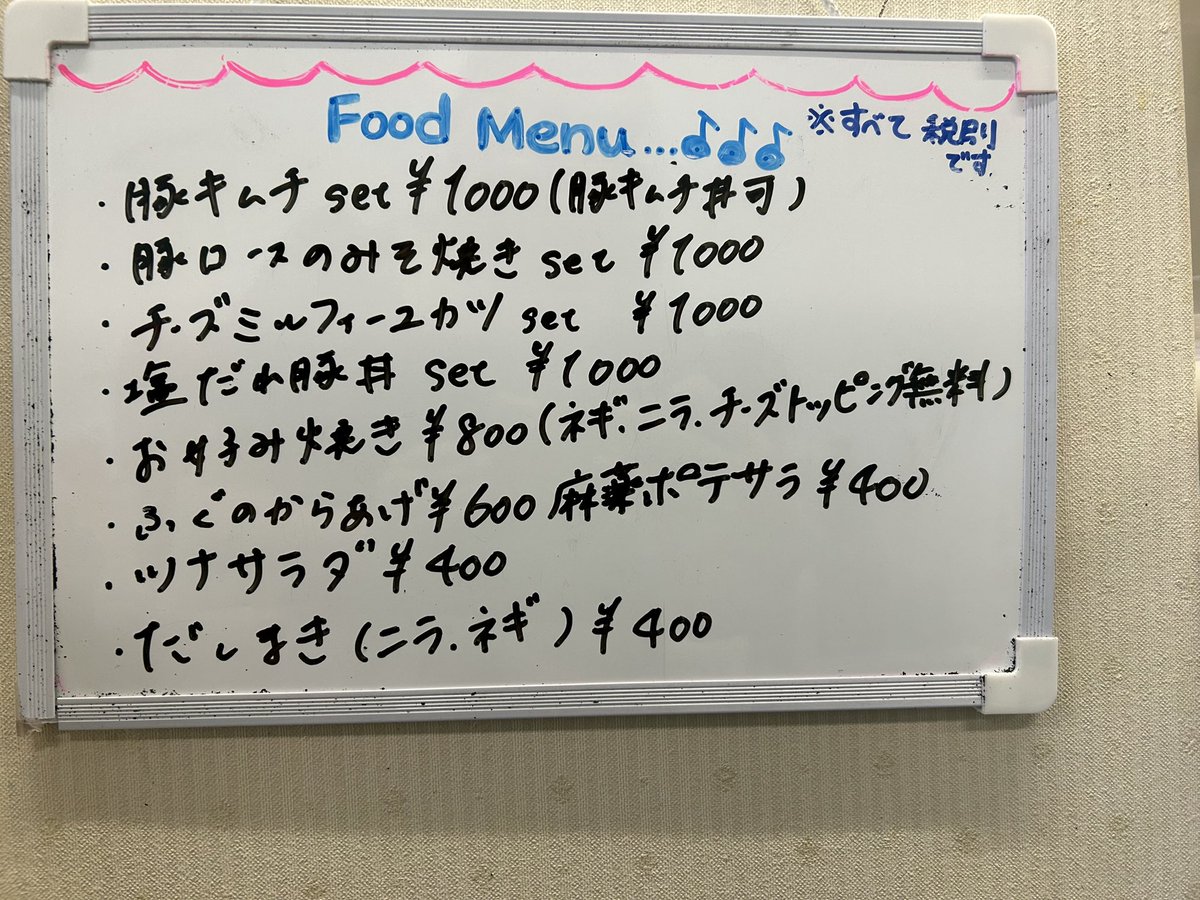 Food Menu...♪♪♪
※すべて税別
です
・豚キムチ set ¥1000(豚キムチ丼可)
・豚ロースのみそ焼き set ¥1000
・チーズミルフィーユカツ set ¥1000
・塩だれ豚丼 set ¥1000
・お好み焼き ¥800(ネギ.ニラ.チーズトッピング無料)
・ふぐのからあげ ¥600 麻薬ポテサラ ¥400
・ツナサラダ ¥400
・だしまき(ニラ.ネギ) ¥400